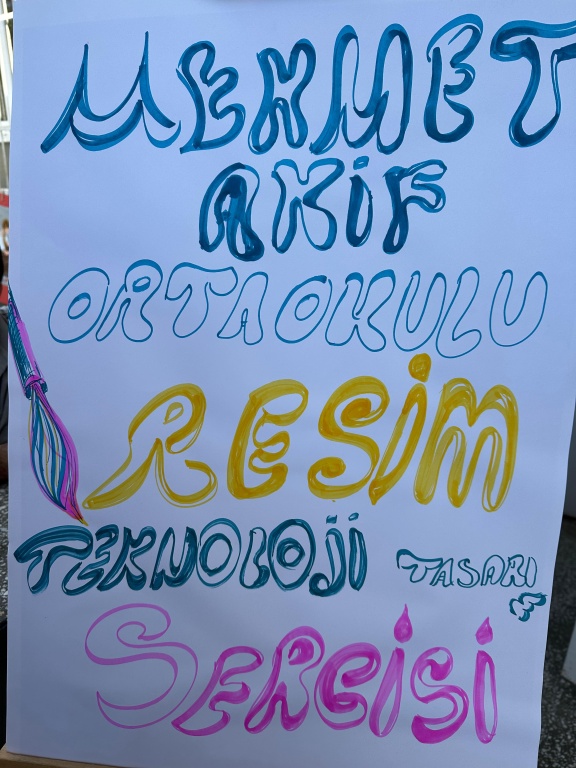 MEHMET
AKİF
ORTAOKULU
RESİM
TEKNOLOJİ TASARI
M
SERGİSİ